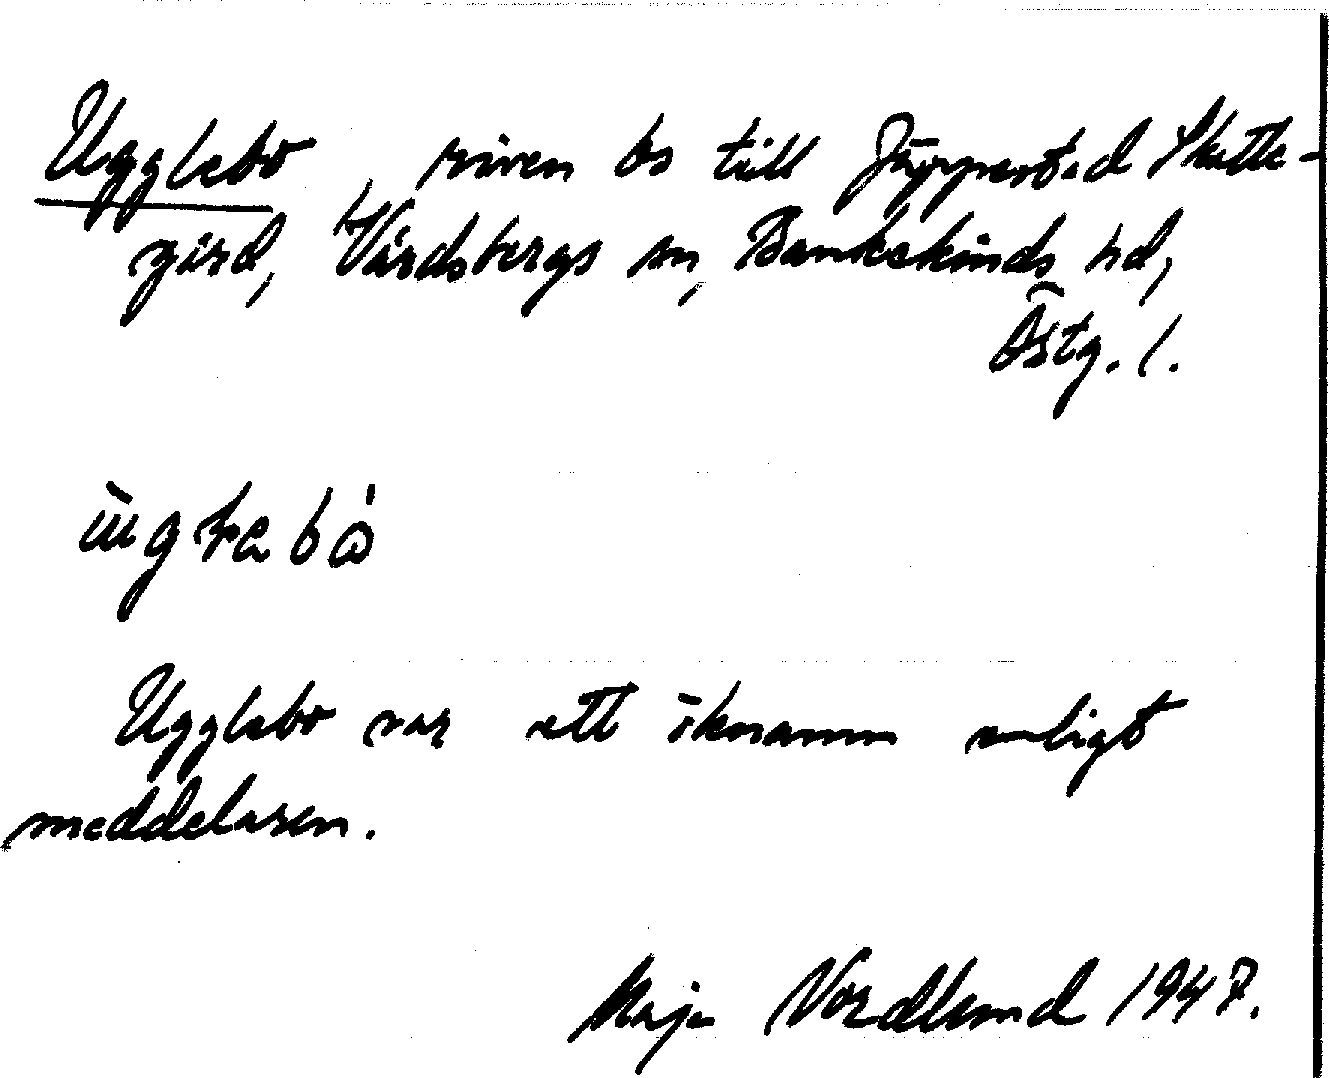 Ugglebo, riven bs till Jägerstad Skatte-
gård, Vårdsbergs sn, Bankekinds hd,
Östg. l.
Ugglebo var ett öknamn enligt
meddelaren.
Maja Nordlund 1947.